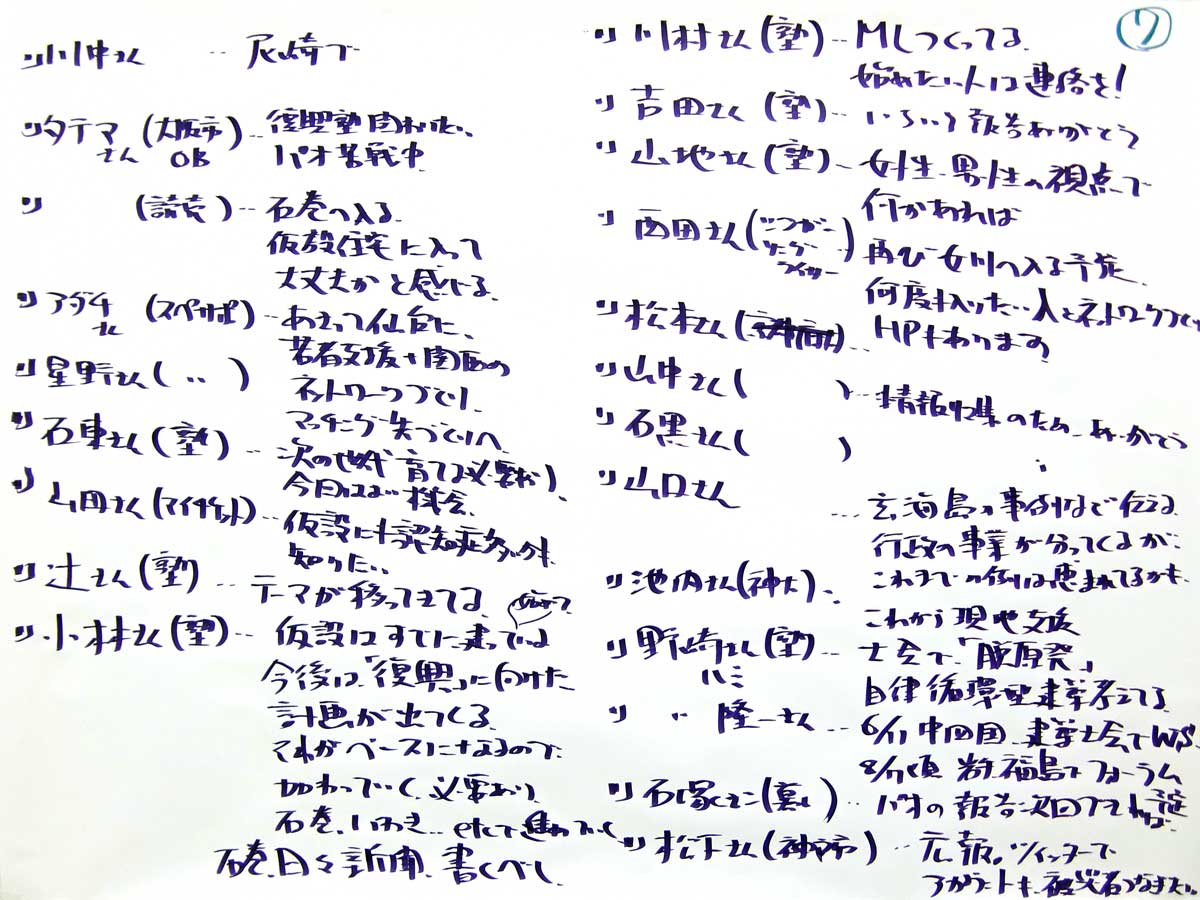 ⑦
り)小川中さん ‥ 尼崎で
り)タテマさん (大阪市OB) ‥ 復興塾関わりたい、
パオ苦戦中
り) (読売) ‥ 石巻へ入る。
仮設住宅に入って
大丈夫かと感じる。
り)アダチさん (スペサポ) ‥ あさって仙台に、
若者支援+関西の
り)星野さん ( ‥ ) ネットワークづくり、
マッチング
り)石東さん (塾) ‥ 次の世代育てる必要あり、
今日はよい機会
り)山田さん (マイチケット) ‥ 仮設にも認知症
知りたい
り)辻さん (塾) ‥ テーマが移ってきてる。
り)小林さん (塾) ‥ 仮設はすでに建ってる
今後は「復興」に向けた
計画が出てくる。
それがベースになるので
加わっていく必要あり
石巻、いわき… etcで進めていく
石巻日々新聞、書くべし
り)川村さん (塾) ‥ MLつくってる。
始めたい人は連絡を!
り)吉田さん (塾) ‥ いろいろ報告ありがとう
り)山地さん (塾) ‥ 女性、男性の視点で
何かあれば
り)西田さん ( ) 再び女川へ入る予定
何度も入った… 人とネットワークづくり
り)松本さん ( ) ‥ HPもあります
り)山中さん ( ) ‥ 情報収集のため、ありがとう
り)石黒さん ( ) 〃
り)山口さん ‥ 玄海島の事例など伝える
行政の事業が分ってくるが、
り)池内さん (神大) ‥ これまでの例は恵まれてるかも
これから現地支援
り)野崎さん (塾) ‥ 士会で「脱原発」
自律循環型建築考えてる
り) 〃 隆一さん ‥ 6/11 中四国 建築士会でWS
福島でフォーラム
り)石塚さん ‥ パオの報告
り)松下さん (神戸市) ‥ 広報。ツイッターで
アカウントも、被災者つなぎたい